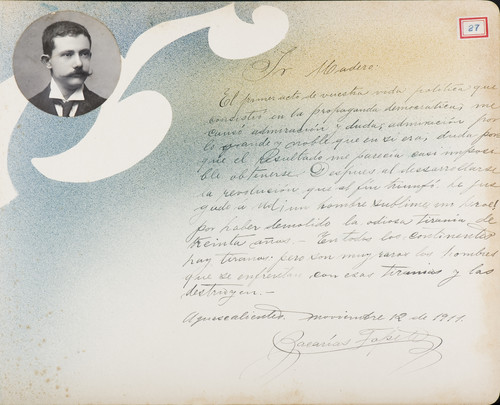 27
Sr Madero.
El primer acto de vuestra vida política que
consistió en la propaganda democratica, me
causó admiración y duda; admiración por
lo grande y noble que en sí era, duda por
que el resultado me parecia casi imposi
ble obtenerse. Despues al desarrollarse
la revolución, que al fin triunfó he juz
gado á Ud. un hombre sublime, un heroe
por haber demolido la odiosa tirania de
treinta años. - En todos los continentes
hay tiranos, pero son muy raros los hombres
que se enfrentan con esas tiranias y las
destruyen. -
Aguascalientes, noviembre 12 de 1911.
Zacarías